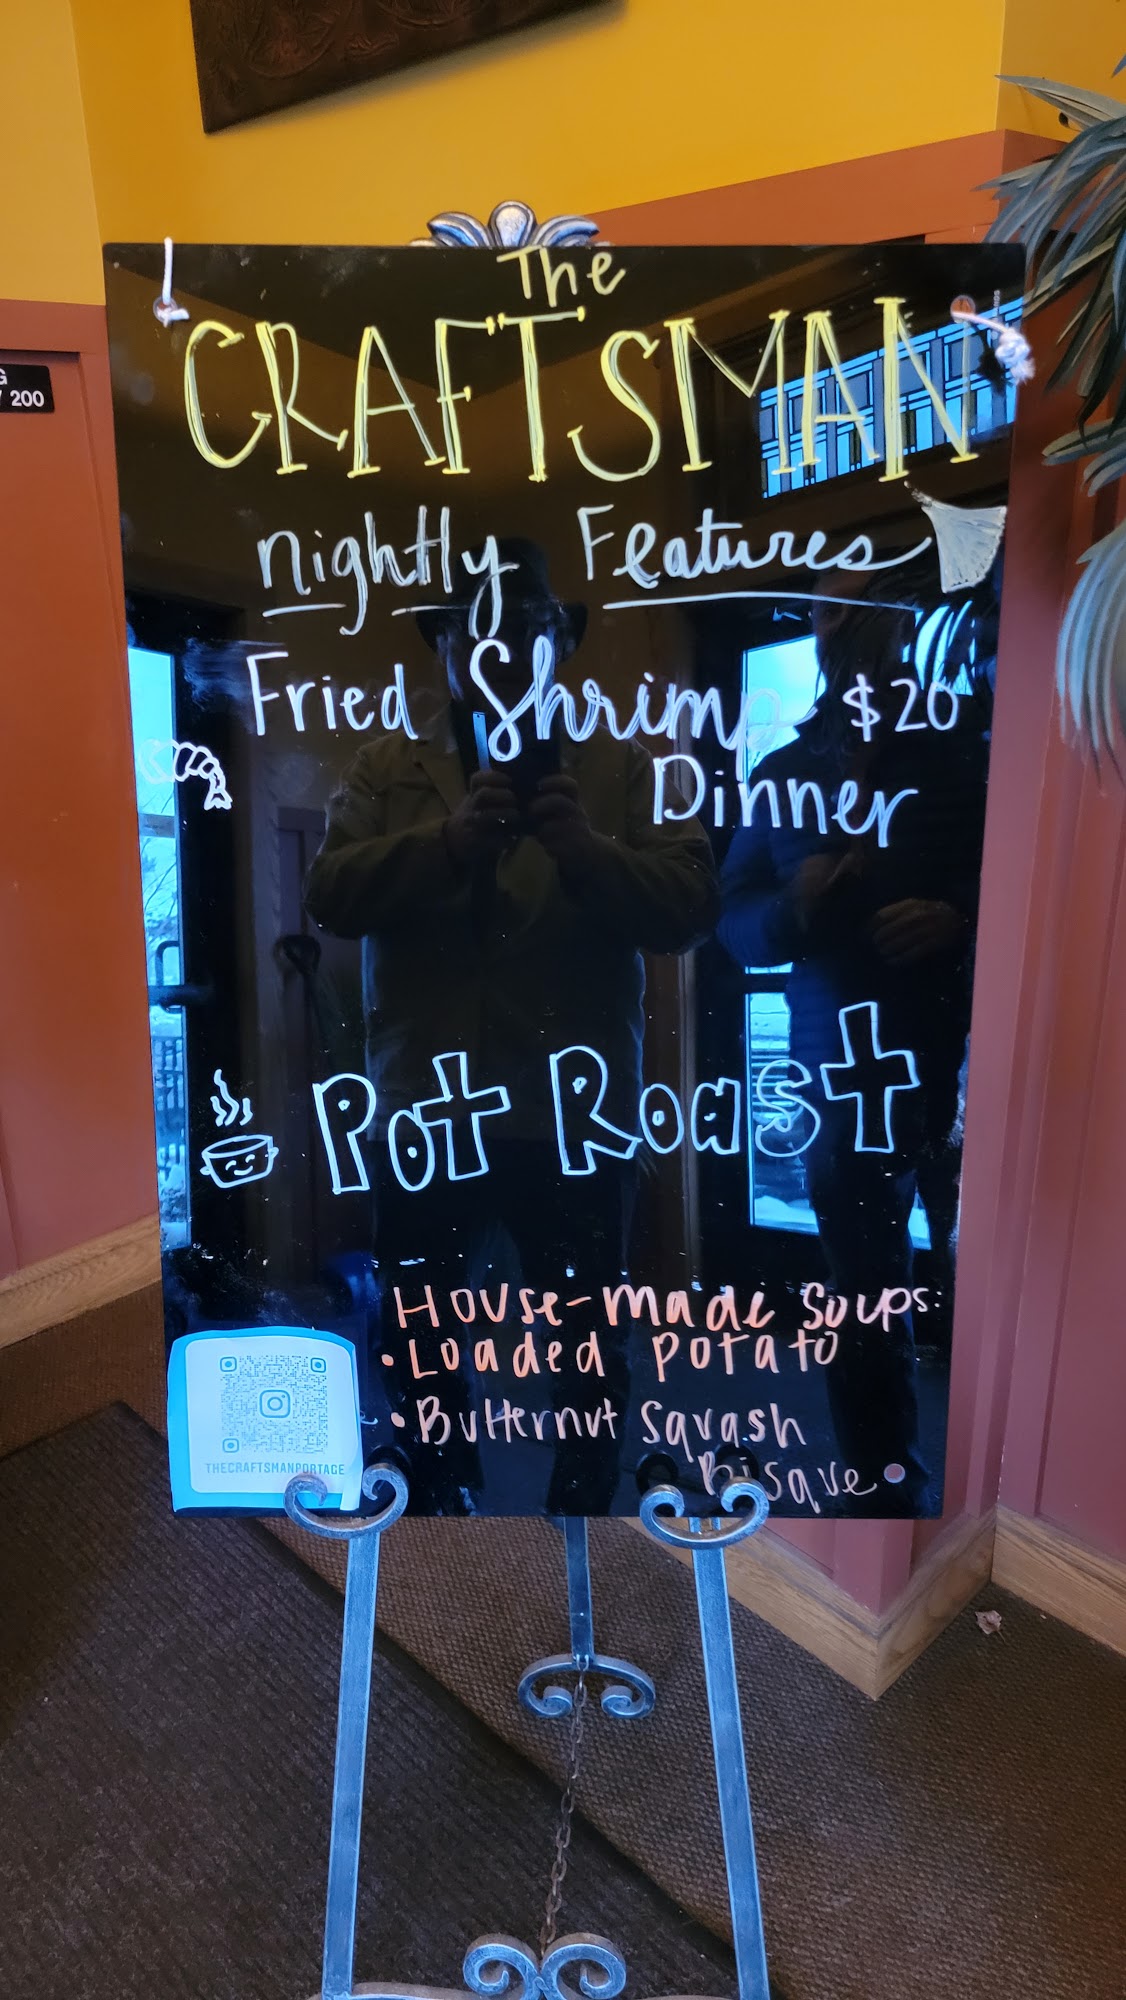 The
CRAFTSMAN
nightly Features
Fried Shrimp $20
Dinner
Pot Roast
House-made Soups:
• Loaded Potato
• Butternut Squash
Bisque
THECRAFTSMANPORTAGE
G
/ 200